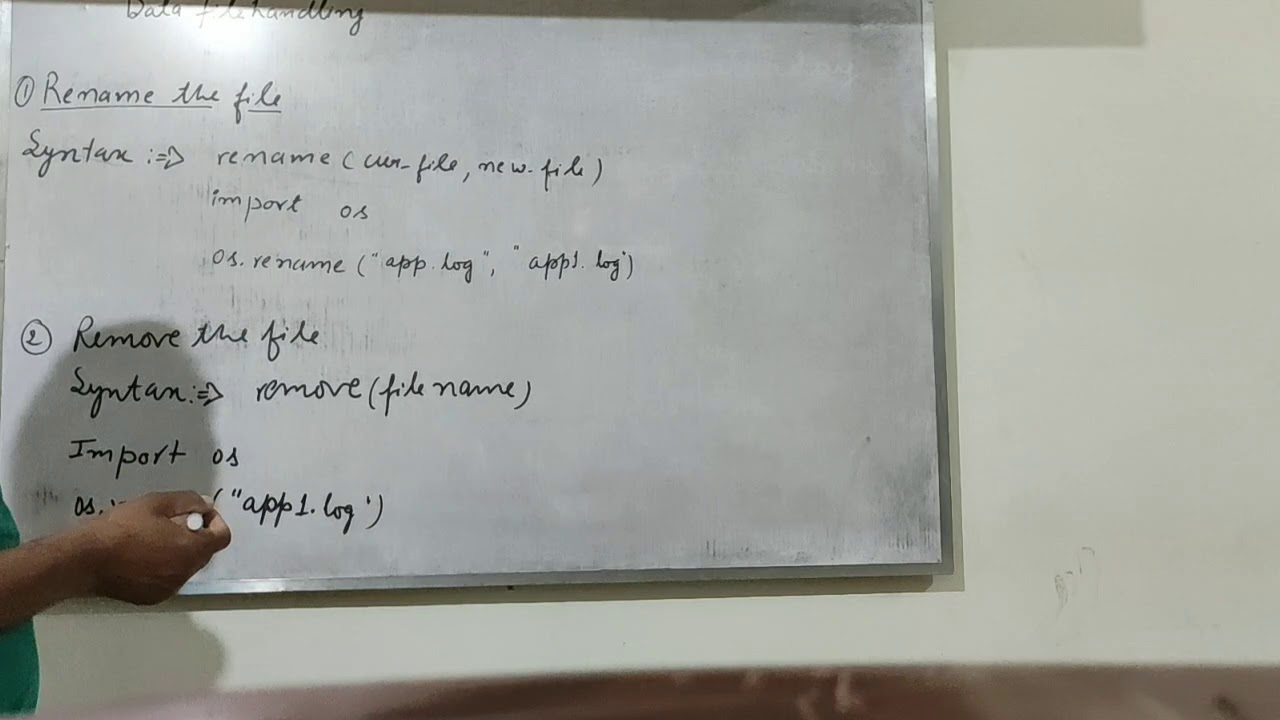 Data filehandling
① Rename the file
Syntax :=> rename (curr_file, new_file)
import os
os.rename ("app.log", "app1.log")
② Remove the file
Syntax :=> remove (file name)
Import os
os. ("app1.log')